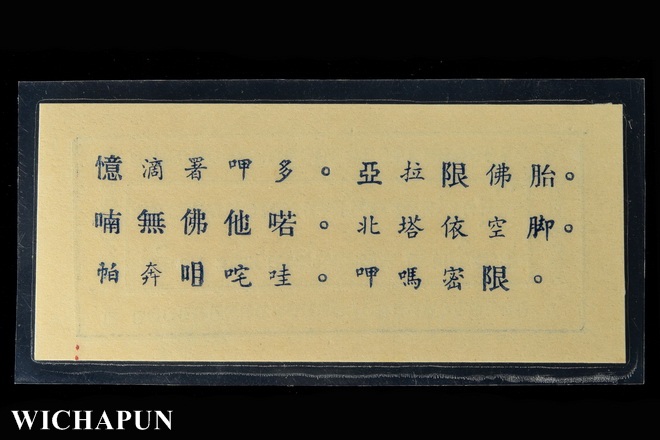 憶滴署呷多。亞拉限佛胎。
喃無佛他喏。北塔依空脚。
帕奔咱咤哇。呷嗎密限。
WICHAPUN